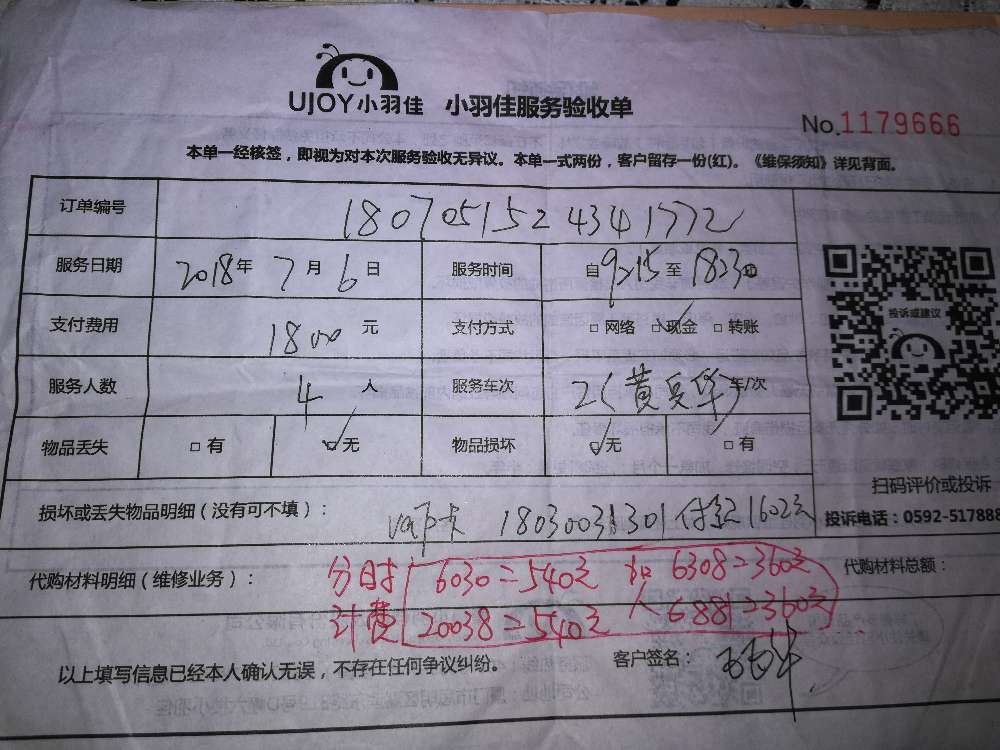 UJOY小羽佳 小羽佳服务验收单
No.1179666
本单一经核签，即视为对本次服务验收无异议。本单一式两份，客户留存一份(红)。《维保须知》详见背面。
订单编号 1807051524341772
服务日期 2018年7月6日 服务时间 自9:15至18:30
支付费用 1800元 支付方式 □网络 ☑现金 □转账
投诉或建议
服务人数 4人 服务车次 2(黄
车/次
物品丢失 □有 ☑无 物品损坏 ☑无 □有
扫码评价或投诉
损坏或丢失物品明细（没有可不填）： 18030031301付款1602元
投诉电话：0592-517888
代购材料明细（维修业务）： 分时 6030=540元 加 6308=360元 代购材料总额：
计费 20038=540元 人 6881=360元
以上填写信息已经本人确认无误，不存在任何争议纠纷。 客户签名：